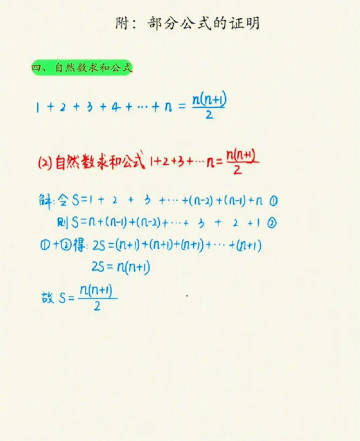 附：部分公式的证明
四、自然数求和公式
1 + 2 + 3 + 4 + ··· + n = n(n+1)/2
(2)自然数求和公式 1+2+3+···n = n(n+1)/2
解：令 S=1 + 2 + 3 + ··· +(n-2)+(n-1)+n ①
则 S=n+(n-1)+(n-2)+···+ 3 + 2 +1 ②
①+②得：2S=(n+1)+(n+1)+(n+1)+···+(n+1)
2S=n(n+1)
故 S= n(n+1)/2